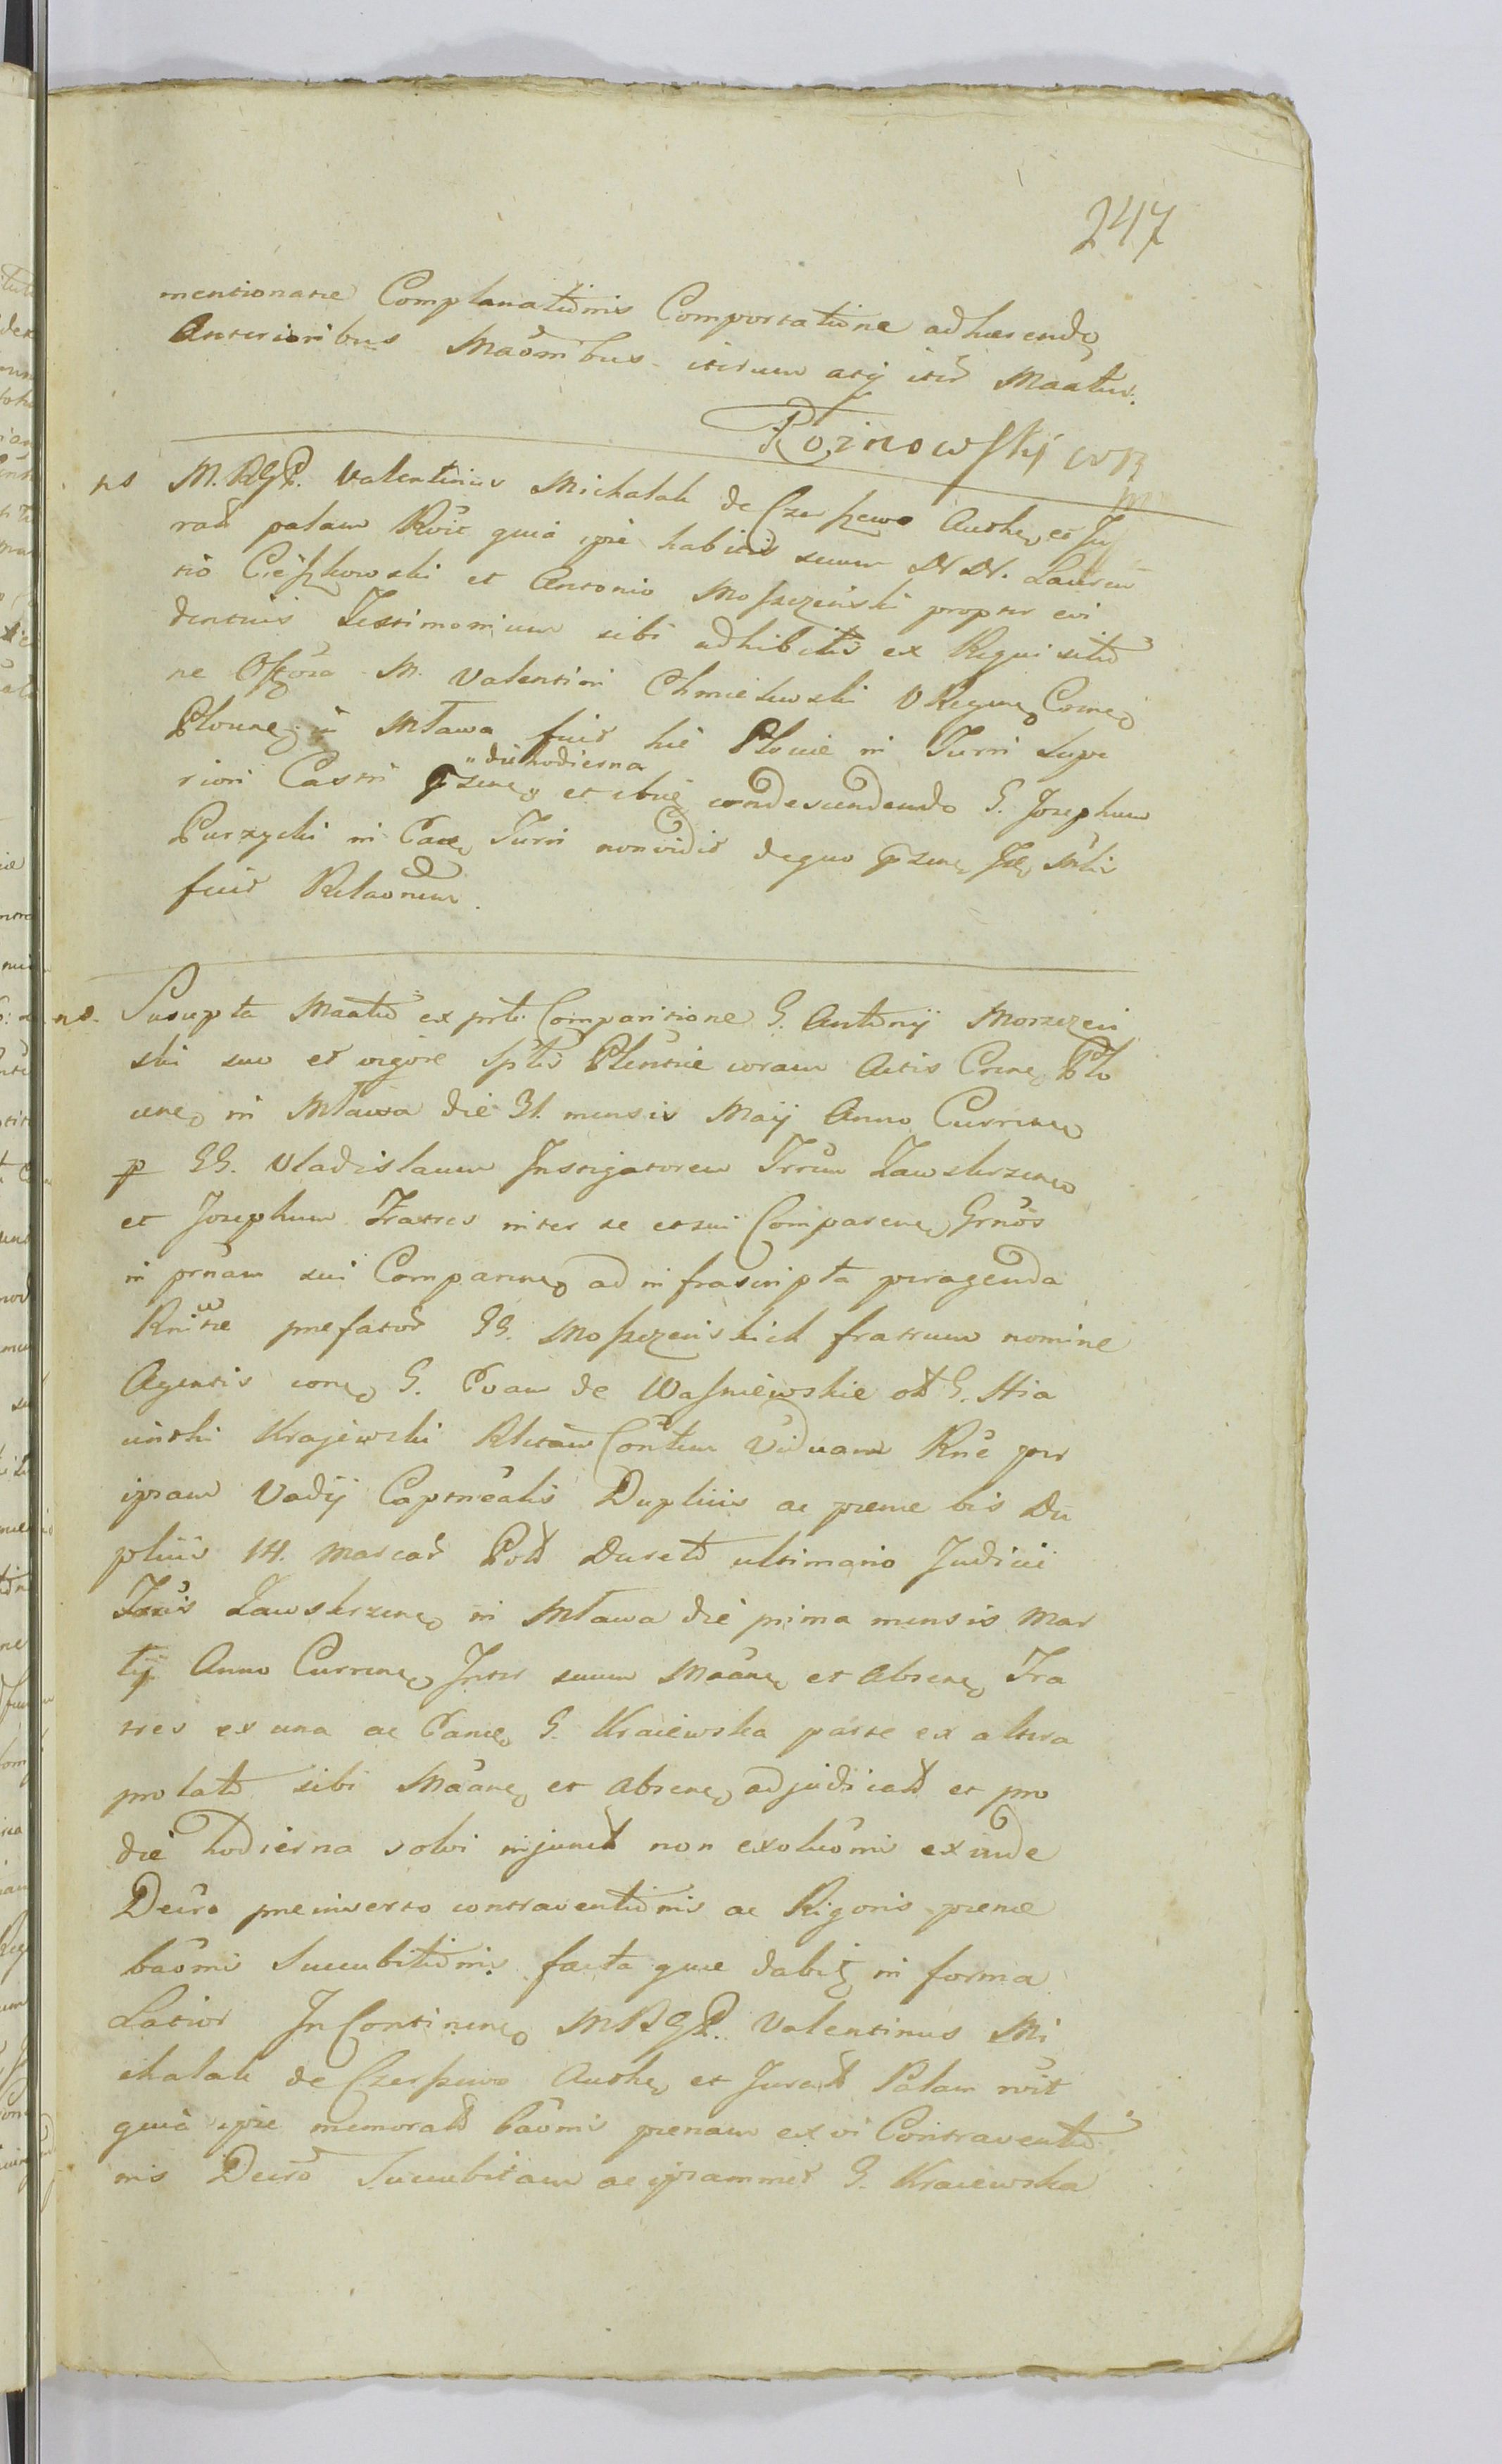 247
mentionatæ Complanationis Comportatione adhærendo
Anterioribus Maõnibus iterum atq iterũ Maatur.
Roinowskj
ns M. RGP. Valentinus Michalak de Czerszewo Authe, et Ju
rat palam Rvit quia ipse habitis secum NN. Lauren
tio Cieszkowski et Antonio Moszczeński propter evi
dentius Testimonium sibi adhibitis ex Requisitio
ne Offõsa M. Valentini Chmielewski VRegene Corne
Plocune in Mława fuit hic Plociæ in Turri Supe
riori Castri
die hodierna
et ibiq condescendendo G. Josephum
Purzycki in Turri non vidit dequo
fuit Relaonem.
ns. Suscepta Maatio ex prti Comparitione G. Antonij Morzczeń
ski suo et vigore Splis Plentiæ coram Actis Crene Plo
cene in Mława die 31. mensis Maij Anno Currene
p GG. Vladislaum Instigatorem Trrũm Zawskrzene
et Josephum Fratres inter se et sui Comparene Grnõs
in prñam sui Comparene ad infrascripta peragenda
præfator GG. Moszczeńskich fratrum nomine
Agentis cone G. Evam de Waśniewskie olt G. Hia
cinthi Krajewski Rlictam Contem Viduam Rne per
ipsam Vadij Captnealis Dupliciis ac pænæ bis Du
pliciis 14. marcar Polt Decreto ultimario Judicii
Trris Zawskrzene in Mława die prima mensis Mar
tij Anno Currene Inter suum Maane et Absene Fra
tres ex una ac G. Kraiewska parte ex altera
prolato sibi Maane et Absene adjudicatt et pro
die hodierna solvi injunctt non exoluõnis exinde
Decro præinserto contraventionis ac Rigoris pænæ
baõnis Succubitionis facta quæ dabitq in forma
Latior InContinene MRGP. Valentinus Mi
chalak de Czerszewo Authe et Juratt Palam rvit
quia ipse memoratt baõnis pænam ex vi Contraventio
nis Decrõ Succubitam ac ipsammet G. Kraiewska